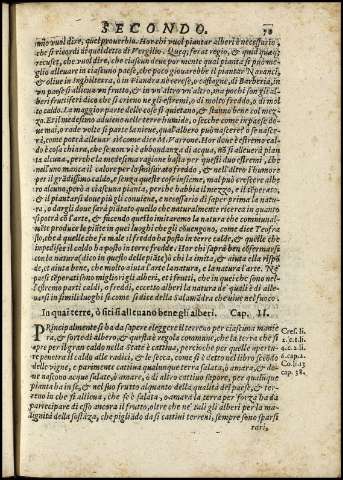 SECONDO. 78
uno vuol dire, quel prouerbio. Hor chi vuol piantar alberi è necessario,
che si ricordi di quel detto di Vergilio. Quæq; ferat regio, & quid quæq;
recuset, che vuol dire, che ciascun deue por mente qual pianta si può me
glio alleuare in ciascuno paese, che poco giouarebbe il piantar Naranci,
& oliue in Inghilterra, ò in Fiandra neuerese, ò castagne, di Barberia, in
un paese si allieua un frutto, & in un'altro un altro, ma pochi son gli al-
beri fruttiferi dico che si trouino negli estremi, di molto freddo, o di mol
to caldo. La maggior parte delle cose si quietano, & stanno bene col mez-
zo. Et il medesimo aduiene nelle terre humide, o secche come in paese do
ue mai, o rade volte si parte la nieue, qual'albero può nascere? ò se nasce-
rà, come potrà alleuarsi? come dice M. Varrone. Hor doue è estremo cal-
do è cosa chiara, che se non vi è abbondanza di acqua, nō si alleuerà pian
ta alcuna, perche la medesima ragione basta per questi duo estremi, che
nell'uno manca il calore per lo smisurato freddo, & nell'altro l'humore
per il grādissimo caldo, e senza queste cose insieme, mal può crescere albe
ro alcuno, però a ciascuna pianta, perche habbia il mezzo, e il tēperato,
& il piantarsi doue più gli conuiene, e necessario di saper prima la natu
ra, o dargli doue sarà piātato quello che naturalmente ricerca in quanto
si potrà cō l'arte, & facendo questo imitaremo la natura che communal-
mēte produce le piāte in quei luoghi che gli cōuengono, come dice Teofra
sto, che à quelle che fa male il freddo ha posto in terre calde, & quelle che
impedisce il caldo ha posto in terre fredde. Hor chi saprà ben osseruare
con la natura (dico in questo delle piāte) ò chi la imita, & aiuta ella rispō
de, et aiuta bene, che molto aiuta l'arte la natura, e la natura l'arte. Ne'
paesi tēperati sono migliori gli alberi, et i frutti, che in quei che sono nel-
l'estremo parti caldi, o freddi, eccetto alberi la natura de' quali è di alle-
uarsi in simili luoghi se come si dice della Salamādra che uiue nel fuoco.
In quai terre, ò siti si alleuano bene gli alberi. Cap. II.
PRincipalmente si ha da sapere eleggere il terreno per ciascuna manie
ra, & sorte di albero, & questa è regola commune, che la terra che si
apre per il gran caldo nella State è cattiua, perche per quelle aperture
penetra il caldo alle radici, & le secca, come si è detto nel libro secōdo
delle vigne, e parimente qualunque terra salata, ò amara, & do-
ue nascono acque salate, ò amare, ò di altro cattiuo sapore, per qualunque
pianta ha in se, & nel suo frutto almento della qualità del paese, & ter-
reno in che si alleuna, che se è salata, o amara la terra per forza ha da
participare di esso ancora il frutto, oltre che ne' tali gli alberi per la ma-
lignità della sostāza, che pigliādo da sì cattiui terreni, sempre sono sparsi
rari,
Cres. li.
2. c. 1. li.
4. c. 2. li.
6. cap. 2.
Co. li. 3
cap. 38.